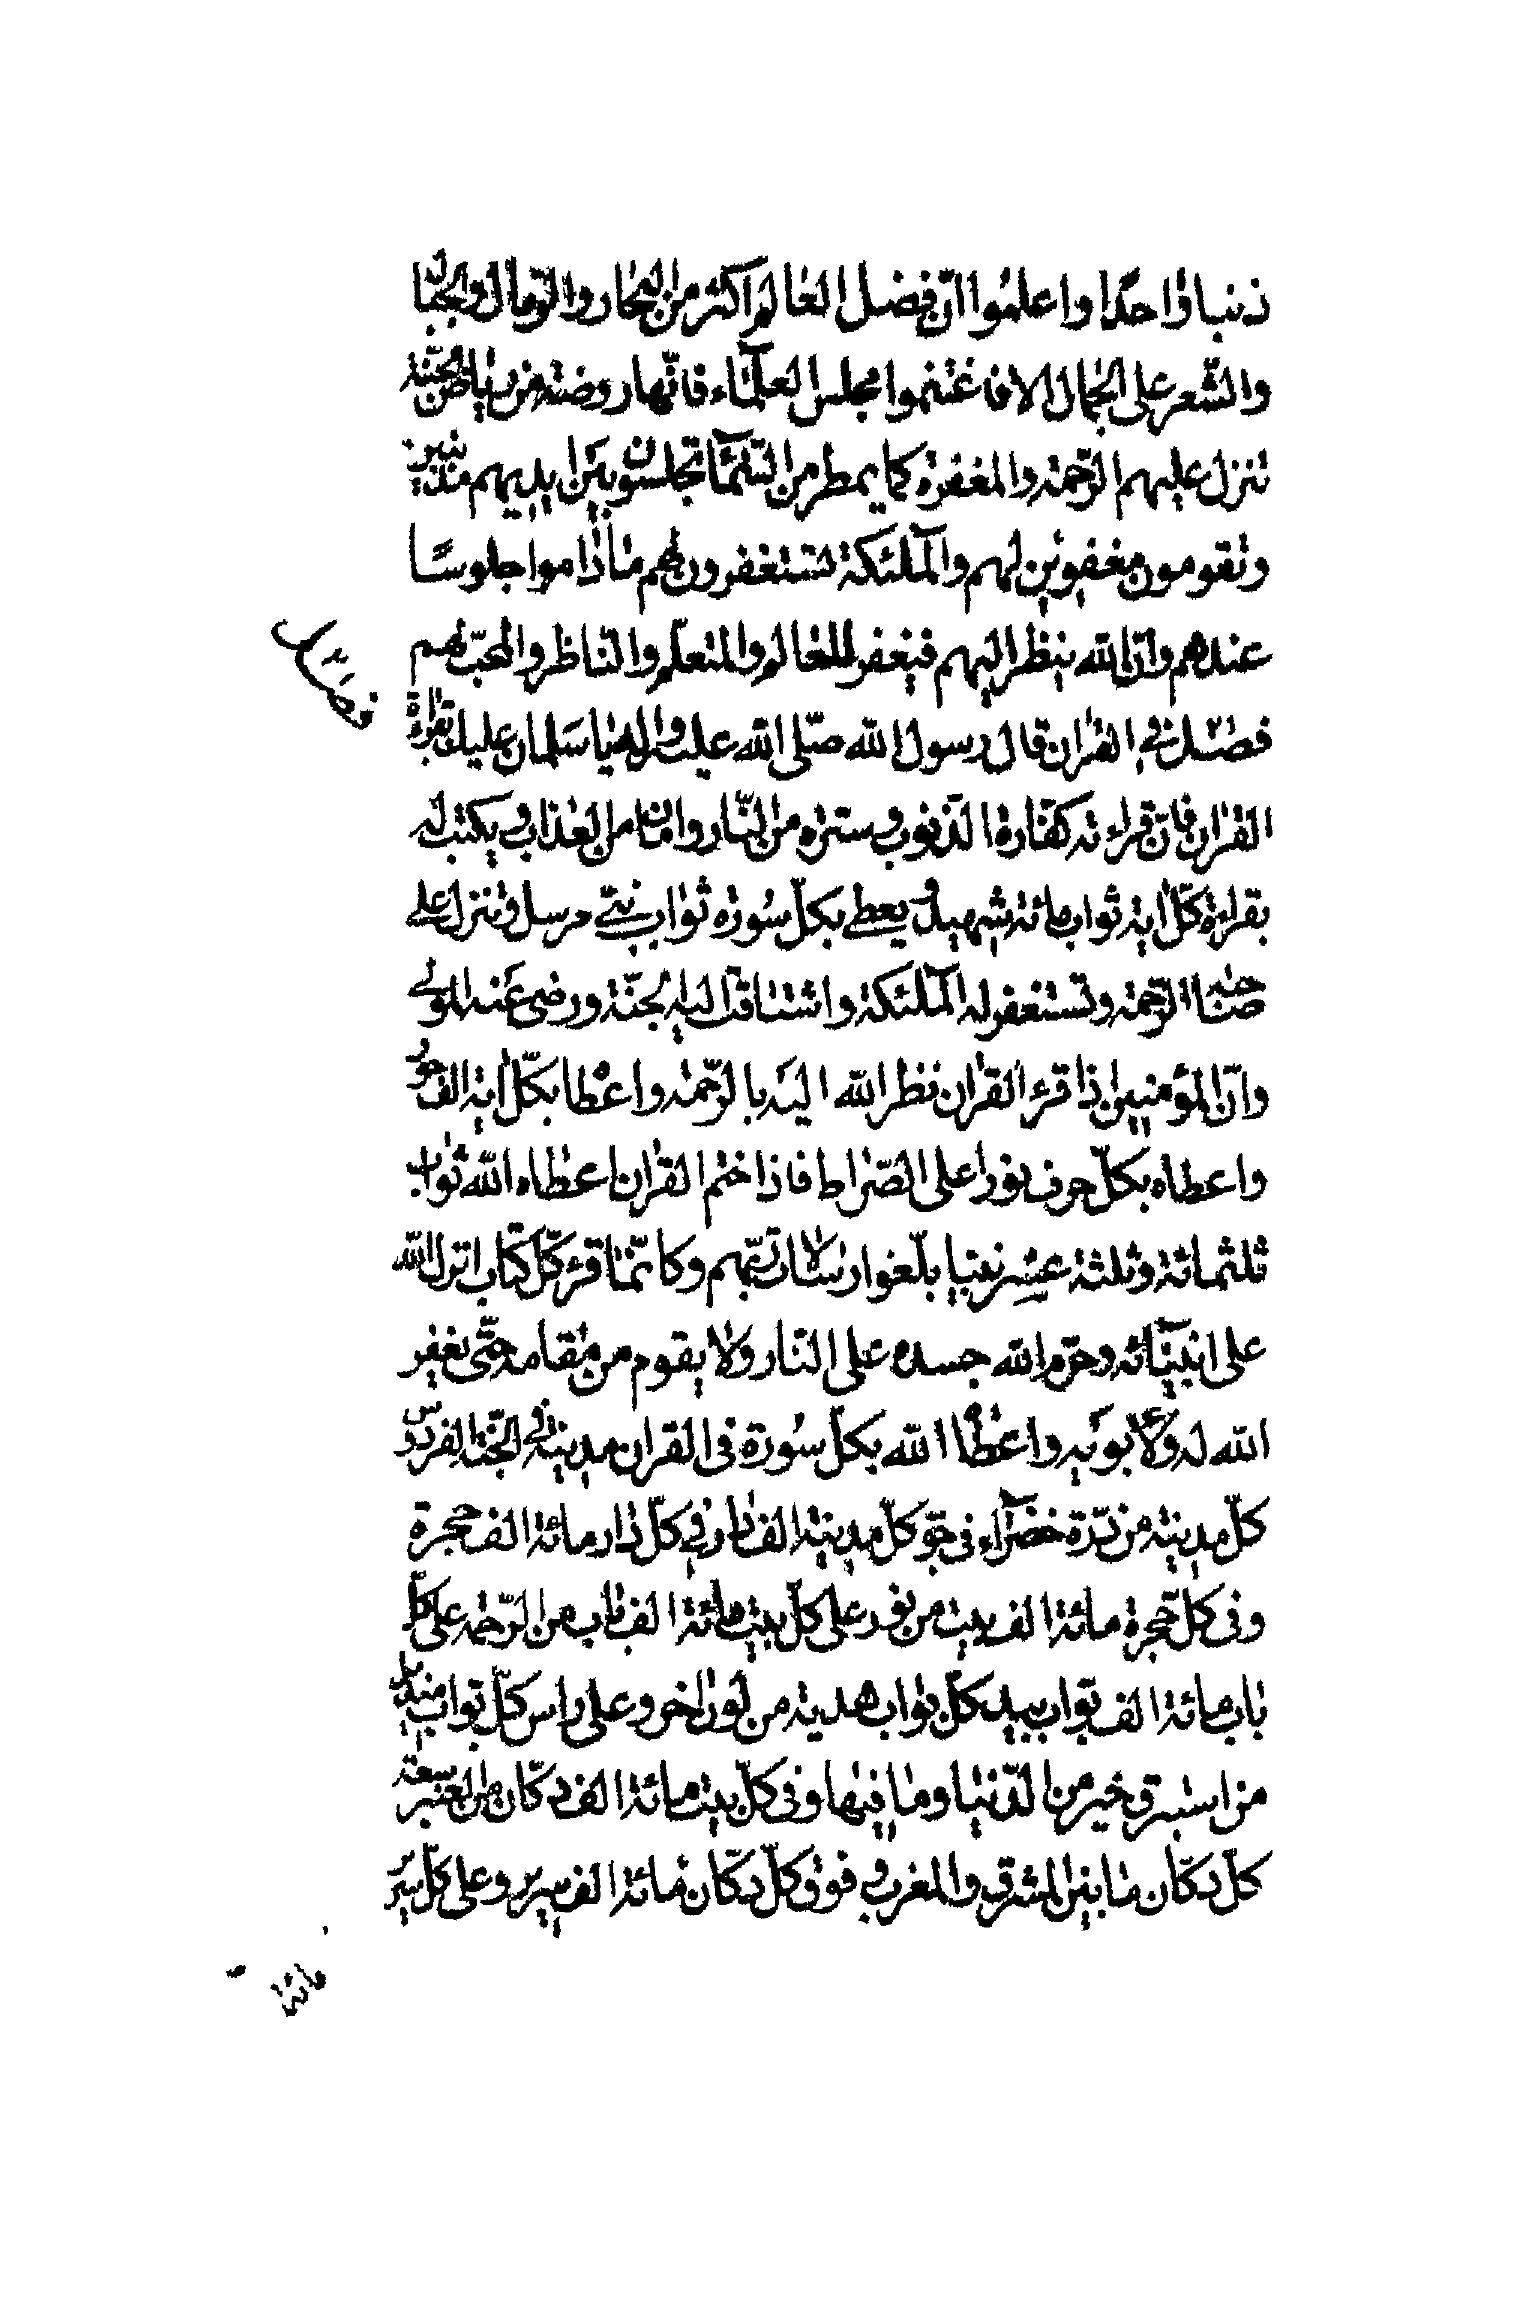 ذنبا واحدا واعلموا ان فضل العالم اكثر من البحار والرمال والجبال
والشعر على الجمال الا فاغتنموا مجلس العلماء فانها روضة من رياض الجنة
تنزل عليهم الرحمة والمغفرة كما يمطر من السماء تجلسون بين ايديهم مذنبين
وتقومون مغفورين لهم والملئكة تستغفرون لهم ماداموا جلوسا
عندهم وان الله ينظر اليهم فيغفر للعالم والمتعلم والناظر والمحب لهم
فصل في القران قال رسول الله صلى الله عليه واله يا سلمان عليك بقراءة
القران فان قراءته كفارة الذنوب وستره من النار وامان من العذاب ويكتب له
بقراءة كل اية ثواب مائة شهيد ويعطى بكل سورة ثواب نبي مرسل وتنزل على
صاحبه الرحمة وتستغفر له الملئكة واشتاقت اليه الجنة ورضى عنه المولى
وان المؤمن اذا قرء القران نظر الله اليه بالرحمة واعطا بكل اية الف حور
واعطاه بكل حرف نورا على الصراط فاذا ختم القران اعطاه الله ثواب
ثلثمائة وثلثة عشر نبيا بلغوا رسالات ربهم وكانما قرء كل كتاب انزل الله
على انبيائه وحرم الله جسده على النار ولا يقوم من مقامه حتى يغفر
الله له ولابويه واعطا الله بكل سورة في القران مدينة في الجنة الفردوس
كل مدينة من درة خضراء في جو كل مدينة الف دار في كل دار مائة الف حجرة
وفي كل حجرة مائة الف بيت من نور على كل بيت مائة الف باب من الرحمة على كل
باب مائة الف بواب بيد كل بواب هدية من لون اخر وعلى راس كل بواب منديل
من استبرق خير من الدنيا وما فيها وفي كل بيت مائة الف دكان من العنبر سعة
كل دكان ما بين المشرق والمغرب وفوق كل دكان مائة الف سرير وعلى كل سرير